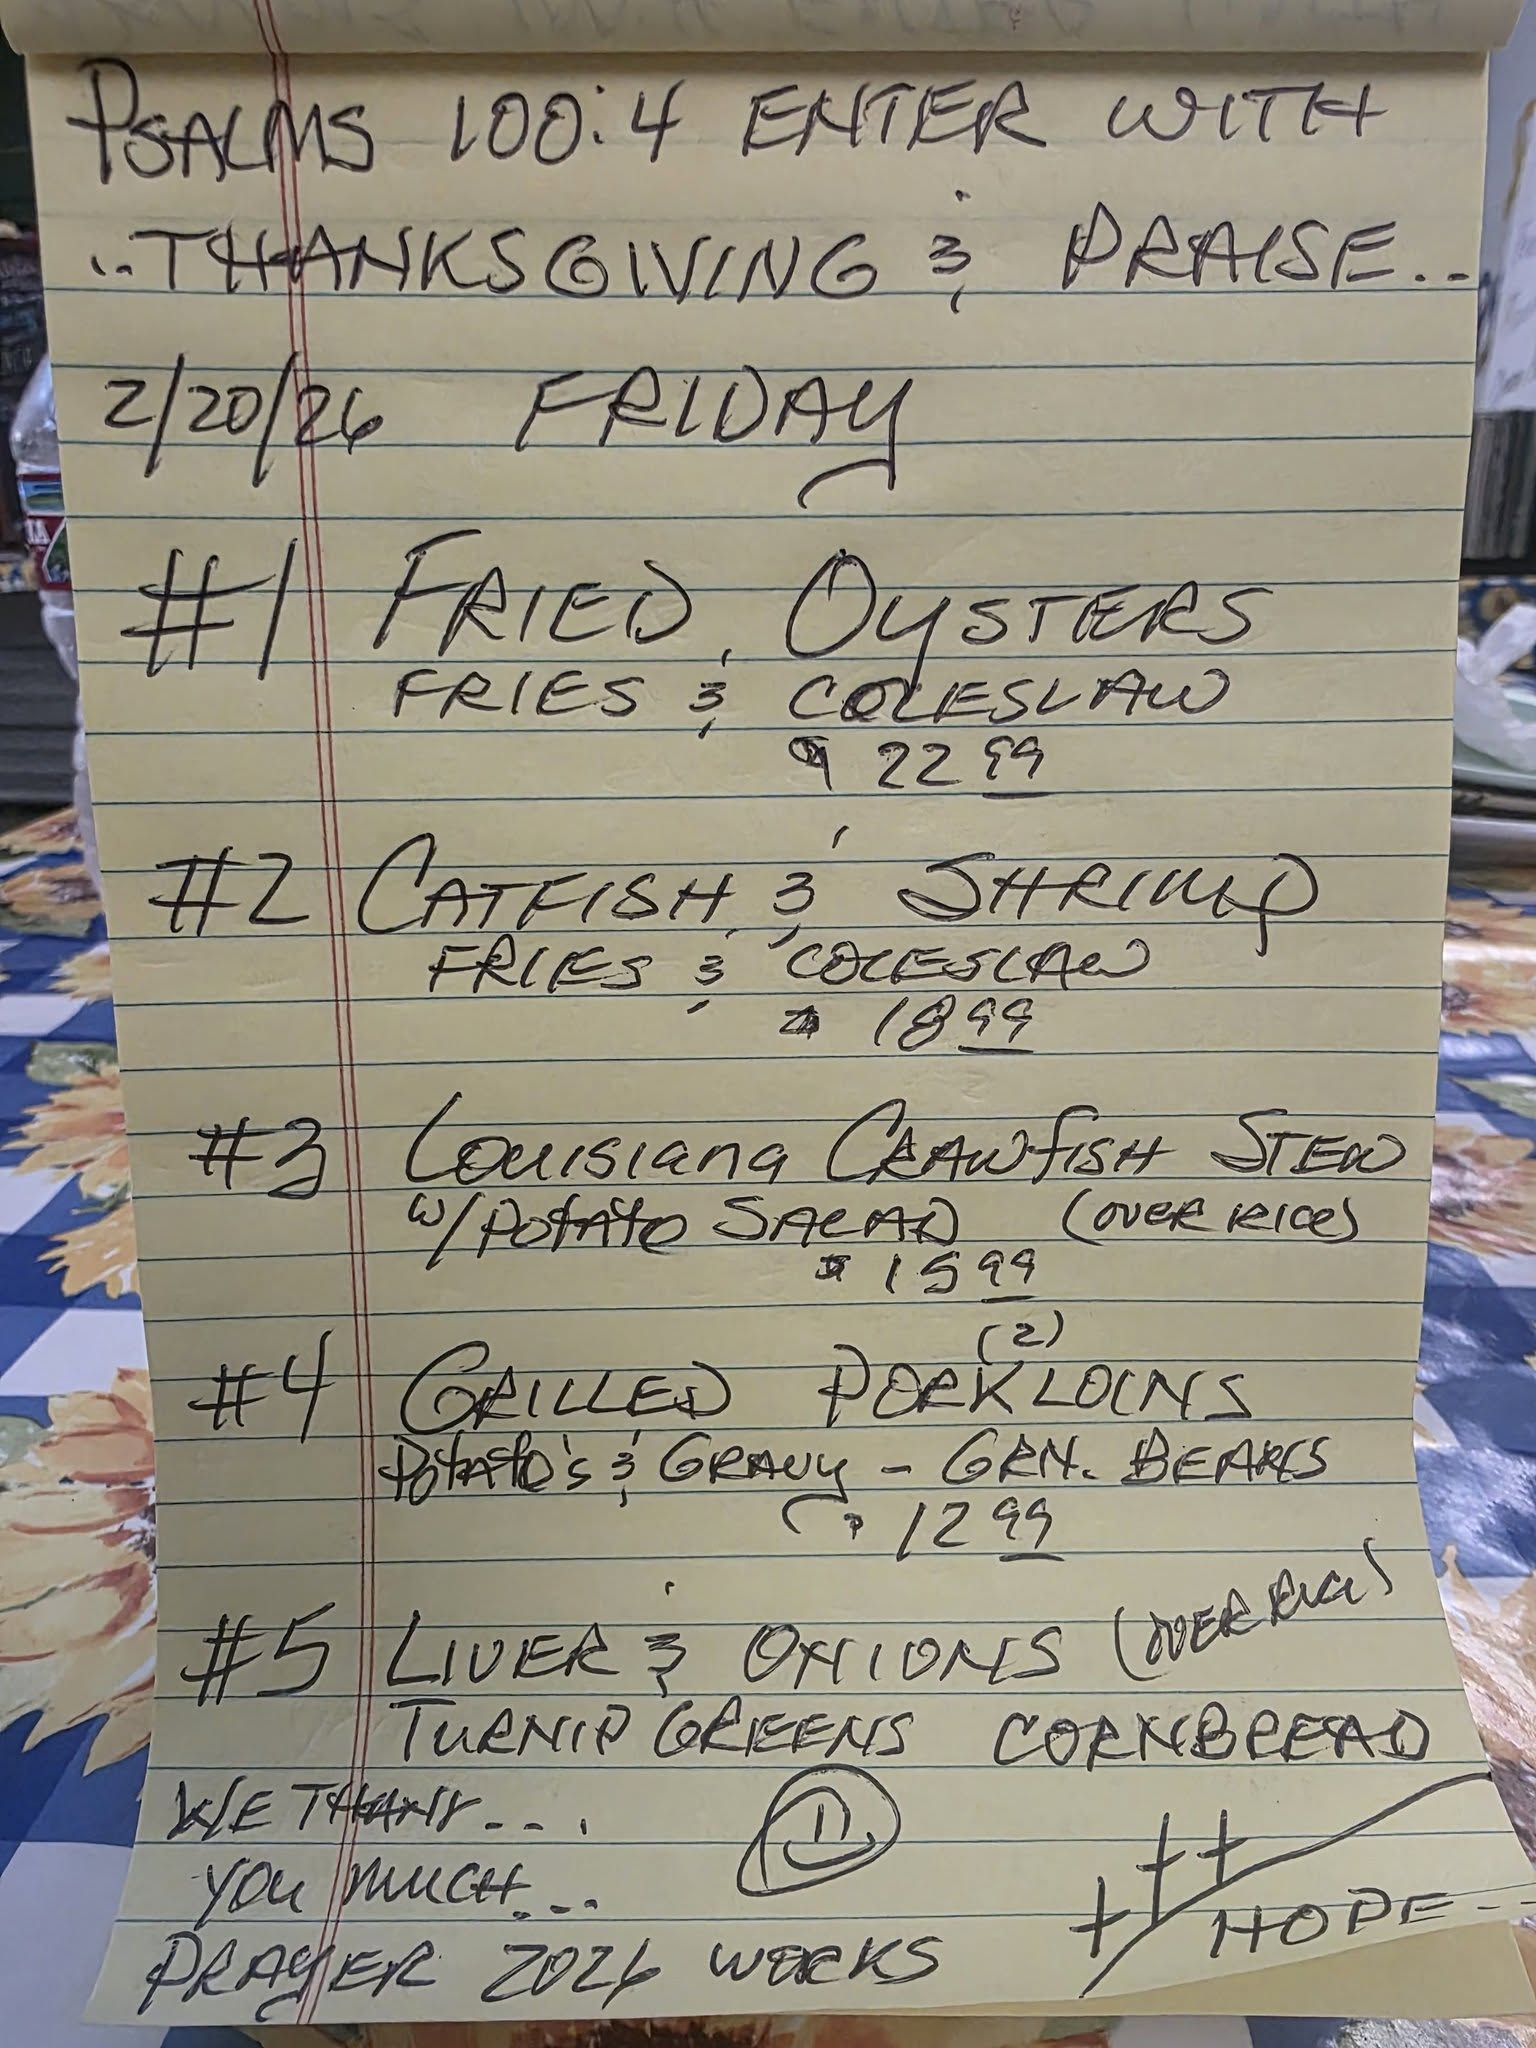 PSALMS 100:4 ENTER WITH
..THANKSGIVING & PRAISE..
2/20/26 FRIDAY
#1 FRIED OYSTERS
FRIES & COLESLAW
$ 22 99
#2 CATFISH & SHRIMP
FRIES & COLESLAW
$ 18 99
#3 Louisiana CRAWfISH STEW
W/POTATO SALAD (OVER RICE)
$ 15 99
(2)
#4 GRILLED PORK LOINS
POTATO'S & GRAVY - GRN. BEANS
12 99
#5 LIVER & ONIONS (OVER RICE)
TURNIP GREENS CORNBREAD
WE THANK....
YOU MUCH....
PRAYER 2026 WORKS
HOPE..